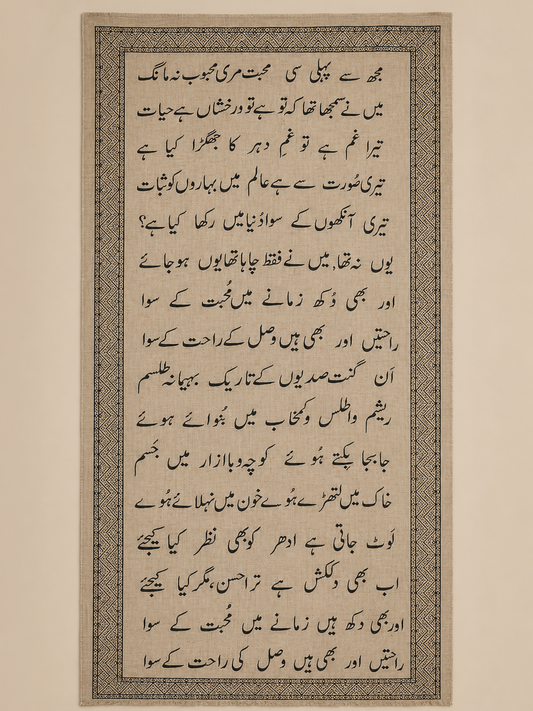 مجھ سے پہلی سی محبت مری محبوب نہ مانگ
میں نے سمجھا تھا کہ تو ہے تو درخشاں ہے حیات
تیرا غم ہے تو غمِ دہر کا جھگڑا کیا ہے
تیری صُورت سے ہے عالم میں بہاروں کو ثبات
تیری آنکھوں کے سوا دُنیا میں رکھا کیا ہے؟
یوں نہ تھا، میں نے فقط چاہا تھا یوں ہو جائے
اور بھی دُکھ زمانے میں مُحبت کے سوا
راحتیں اور بھی ہیں وصل کے راحت کے سوا
اَن گنت صدیوں کے تاریک بہیمانہ طلسم
ریشم و اطلس و کمخاب میں بُنوائے ہوئے
جابجا بِکتے ہُوئے کوچہ و باازار میں جَسم
خاک میں لتھڑے ہُوے خون میں نہلائے ہُوے
لَوٹ جاتی ہے ادھر کو بھی نظر کیا کیجئے
اب بھی دلکش ہے ترا حسن، مگر کیا کیجئے
اور بھی دکھ ہیں زمانے میں مُحبت کے سوا
راحتیں اور بھی ہیں وصل کی راحت کے سوا